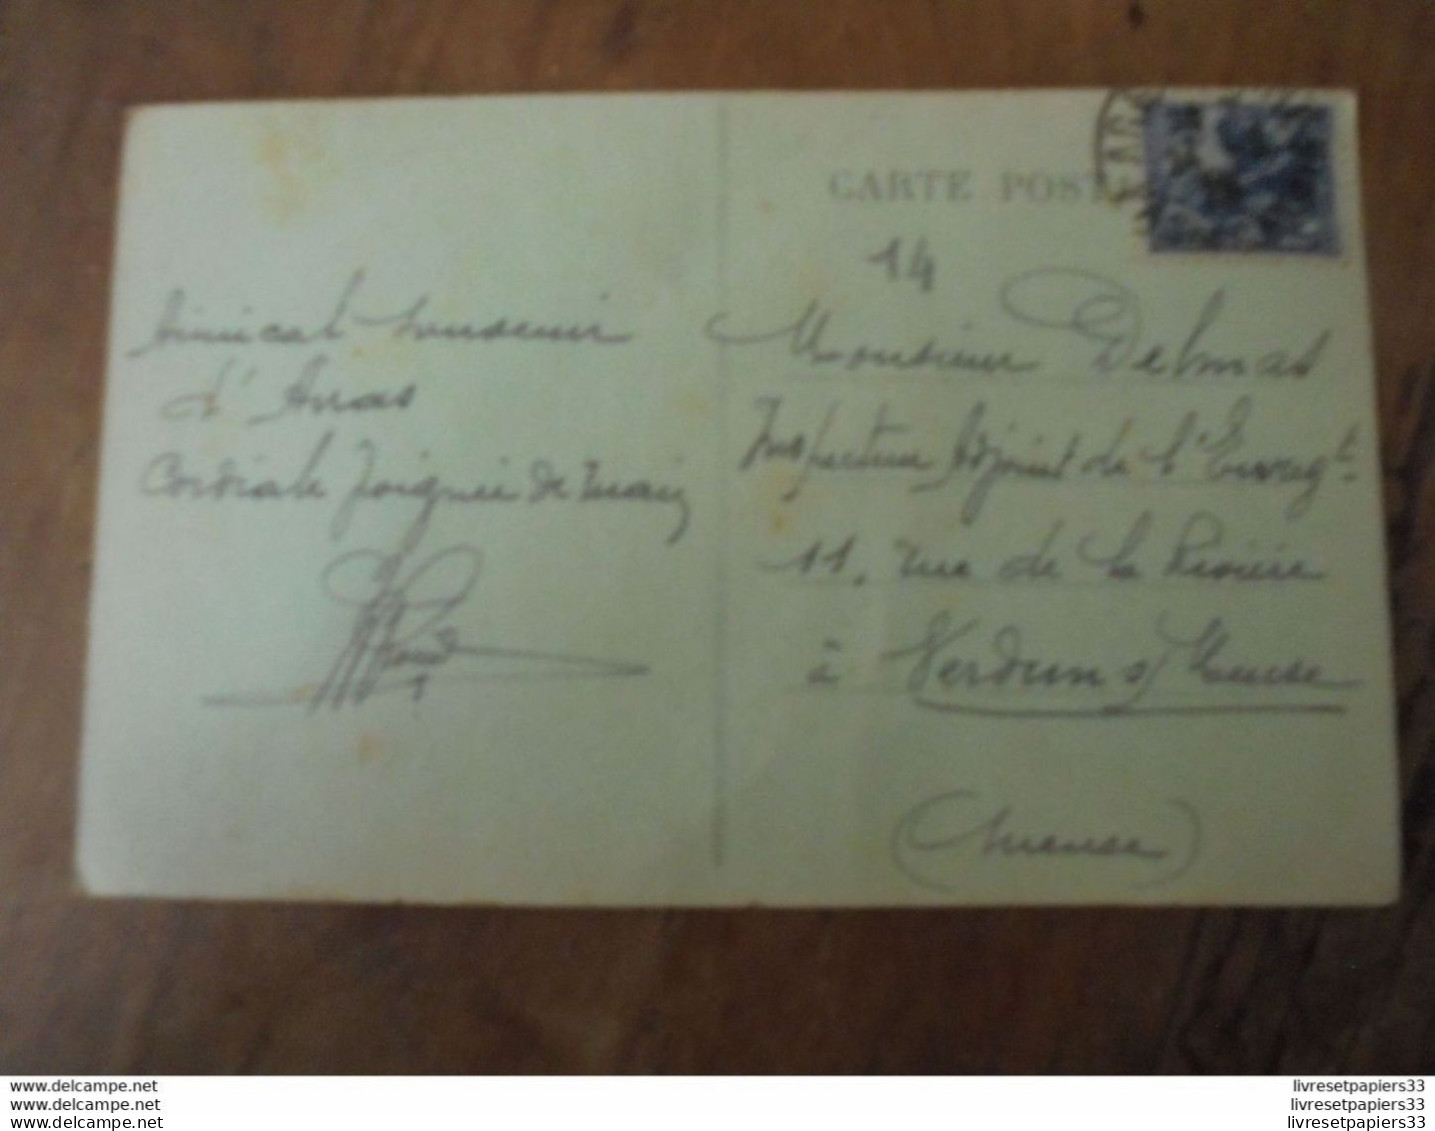 CARTE POST
14
Amical souvenir
d'Arras
Cordiale poignée de main
Monsieur Delmas
Inspecteur Adjoint de l'Enregt
11, rue de la Rivière
à Verdun s/ Meuse
(Meuse)
www.delcampe.net
www.delcampe.net
www.delcampe.net
livresetpapiers33
livresetpapiers33
livresetpapiers33